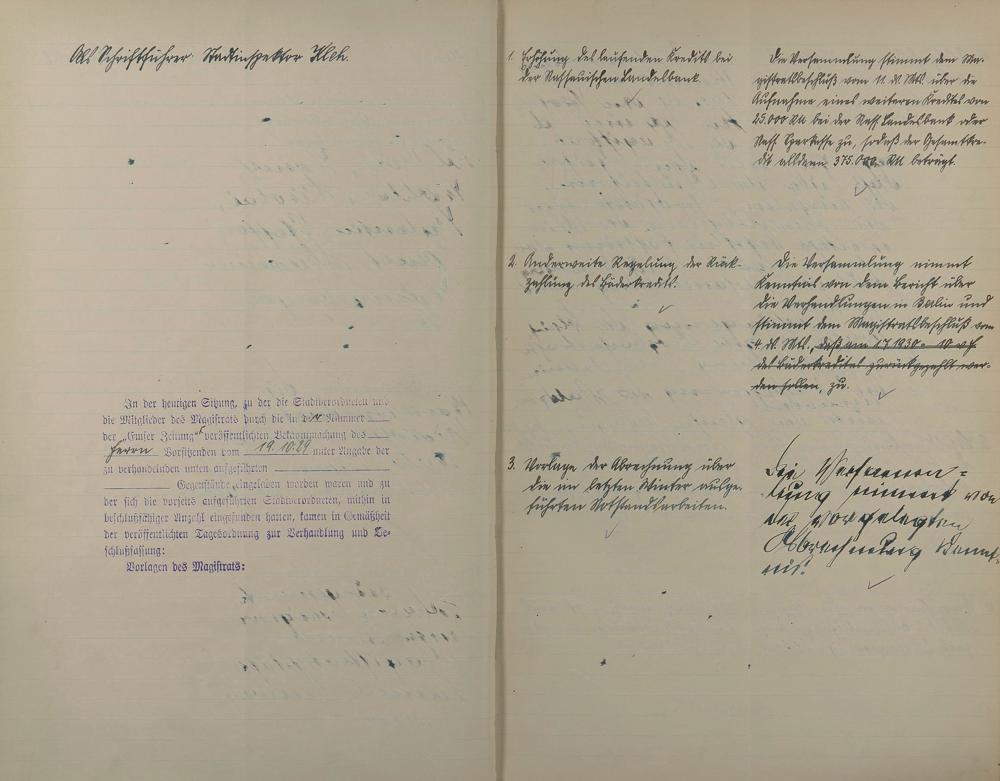 Als Schriftführer: Stadtinspektor
In der heutigen Sitzung, zu der die Stadtverordneten und
die Mitglieder des Magistrats durch die in der Nummer
der „Emser Zeitung“ veröffentlichten Bekanntmachung des
Herrn Vorsitzenden vom 19.10.29 unter Angabe der
zu verhandelnden unten aufgeführten
Gegenstände eingeladen worden waren und zu
der sich die vorseits aufgeführten Stadtverordneten, mithin in
beschlußfähiger Anzahl eingefunden hatten, kamen in Gemäßheit
der veröffentlichten Tagesordnung zur Verhandlung und Be-
schlußfassung:
Vorlagen des Magistrats:
1. Erhöhung des laufenden Kredits bei
der Nassauischen Landesbank.
Die Versammlung stimmt dem Ma-
gistratsbeschluß vom 11. ds. Mts. über die
Aufnahme eines weiteren Kredites von
25.000 RM bei der Nass. Landesbank oder
Nass. Sparkasse zu, sodaß der Gesamtkre-
dit alsdann 375.000.- RM beträgt.
2. Anderweite Regelung der Rück-
zahlung des Bäderkredits.
Die Versammlung nimmt
Kenntnis von dem Bericht über
die Verhandlungen in Berlin und
stimmt dem Magistratsbeschluß vom
4. ds. Mts., daß am 1.7.1930 10 v.H.
des Bäderkredites zurückgezahlt wer-
den sollen, zu.
3. Vorlage der Abrechnung über
die im letzten Winter ausge-
führten Notstandsarbeiten.
Die Versamm-
lung nimmt von
der vorgelegten
Abrechnung Kennt-
nis.